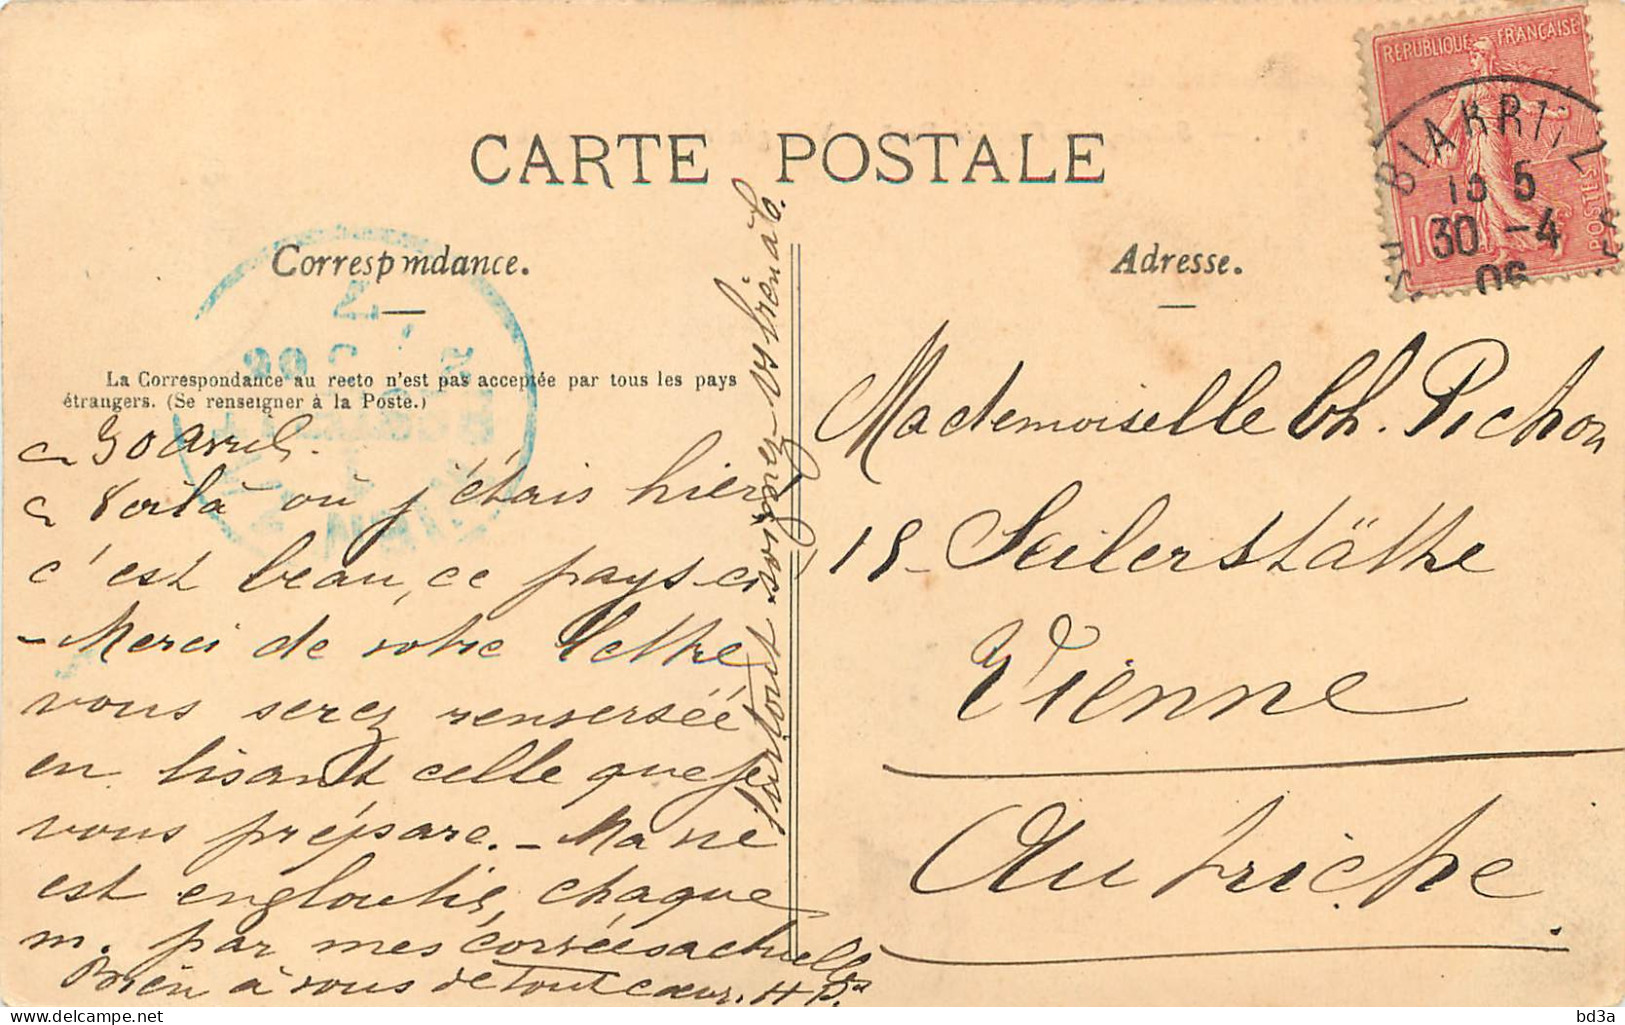 CARTE POSTALE
REPUBLIQUE FRANÇAISE
POSTES
10
BIARRITZ
30 -4
06
Correspondance.
Adresse.
La Correspondance au recto n'est pas acceptée par tous les pays
étrangers. (Se renseigner à la Poste.)
30 avril.
Voilà où j'étais hier,
c'est beau, ce pays-ci
- Merci de votre lettre
vous serez renversée
en lisant celle que je
vous prépare. - Ma vie
est engloutie, chaque
m. par mes corvées actuelles
Bien à vous de tout cœur. H P.
surtout soignez-vs bien
Mademoiselle Ch. Pichon
Seilerstäthe
Vienne
Autriche.
delcampe.net
bd3a